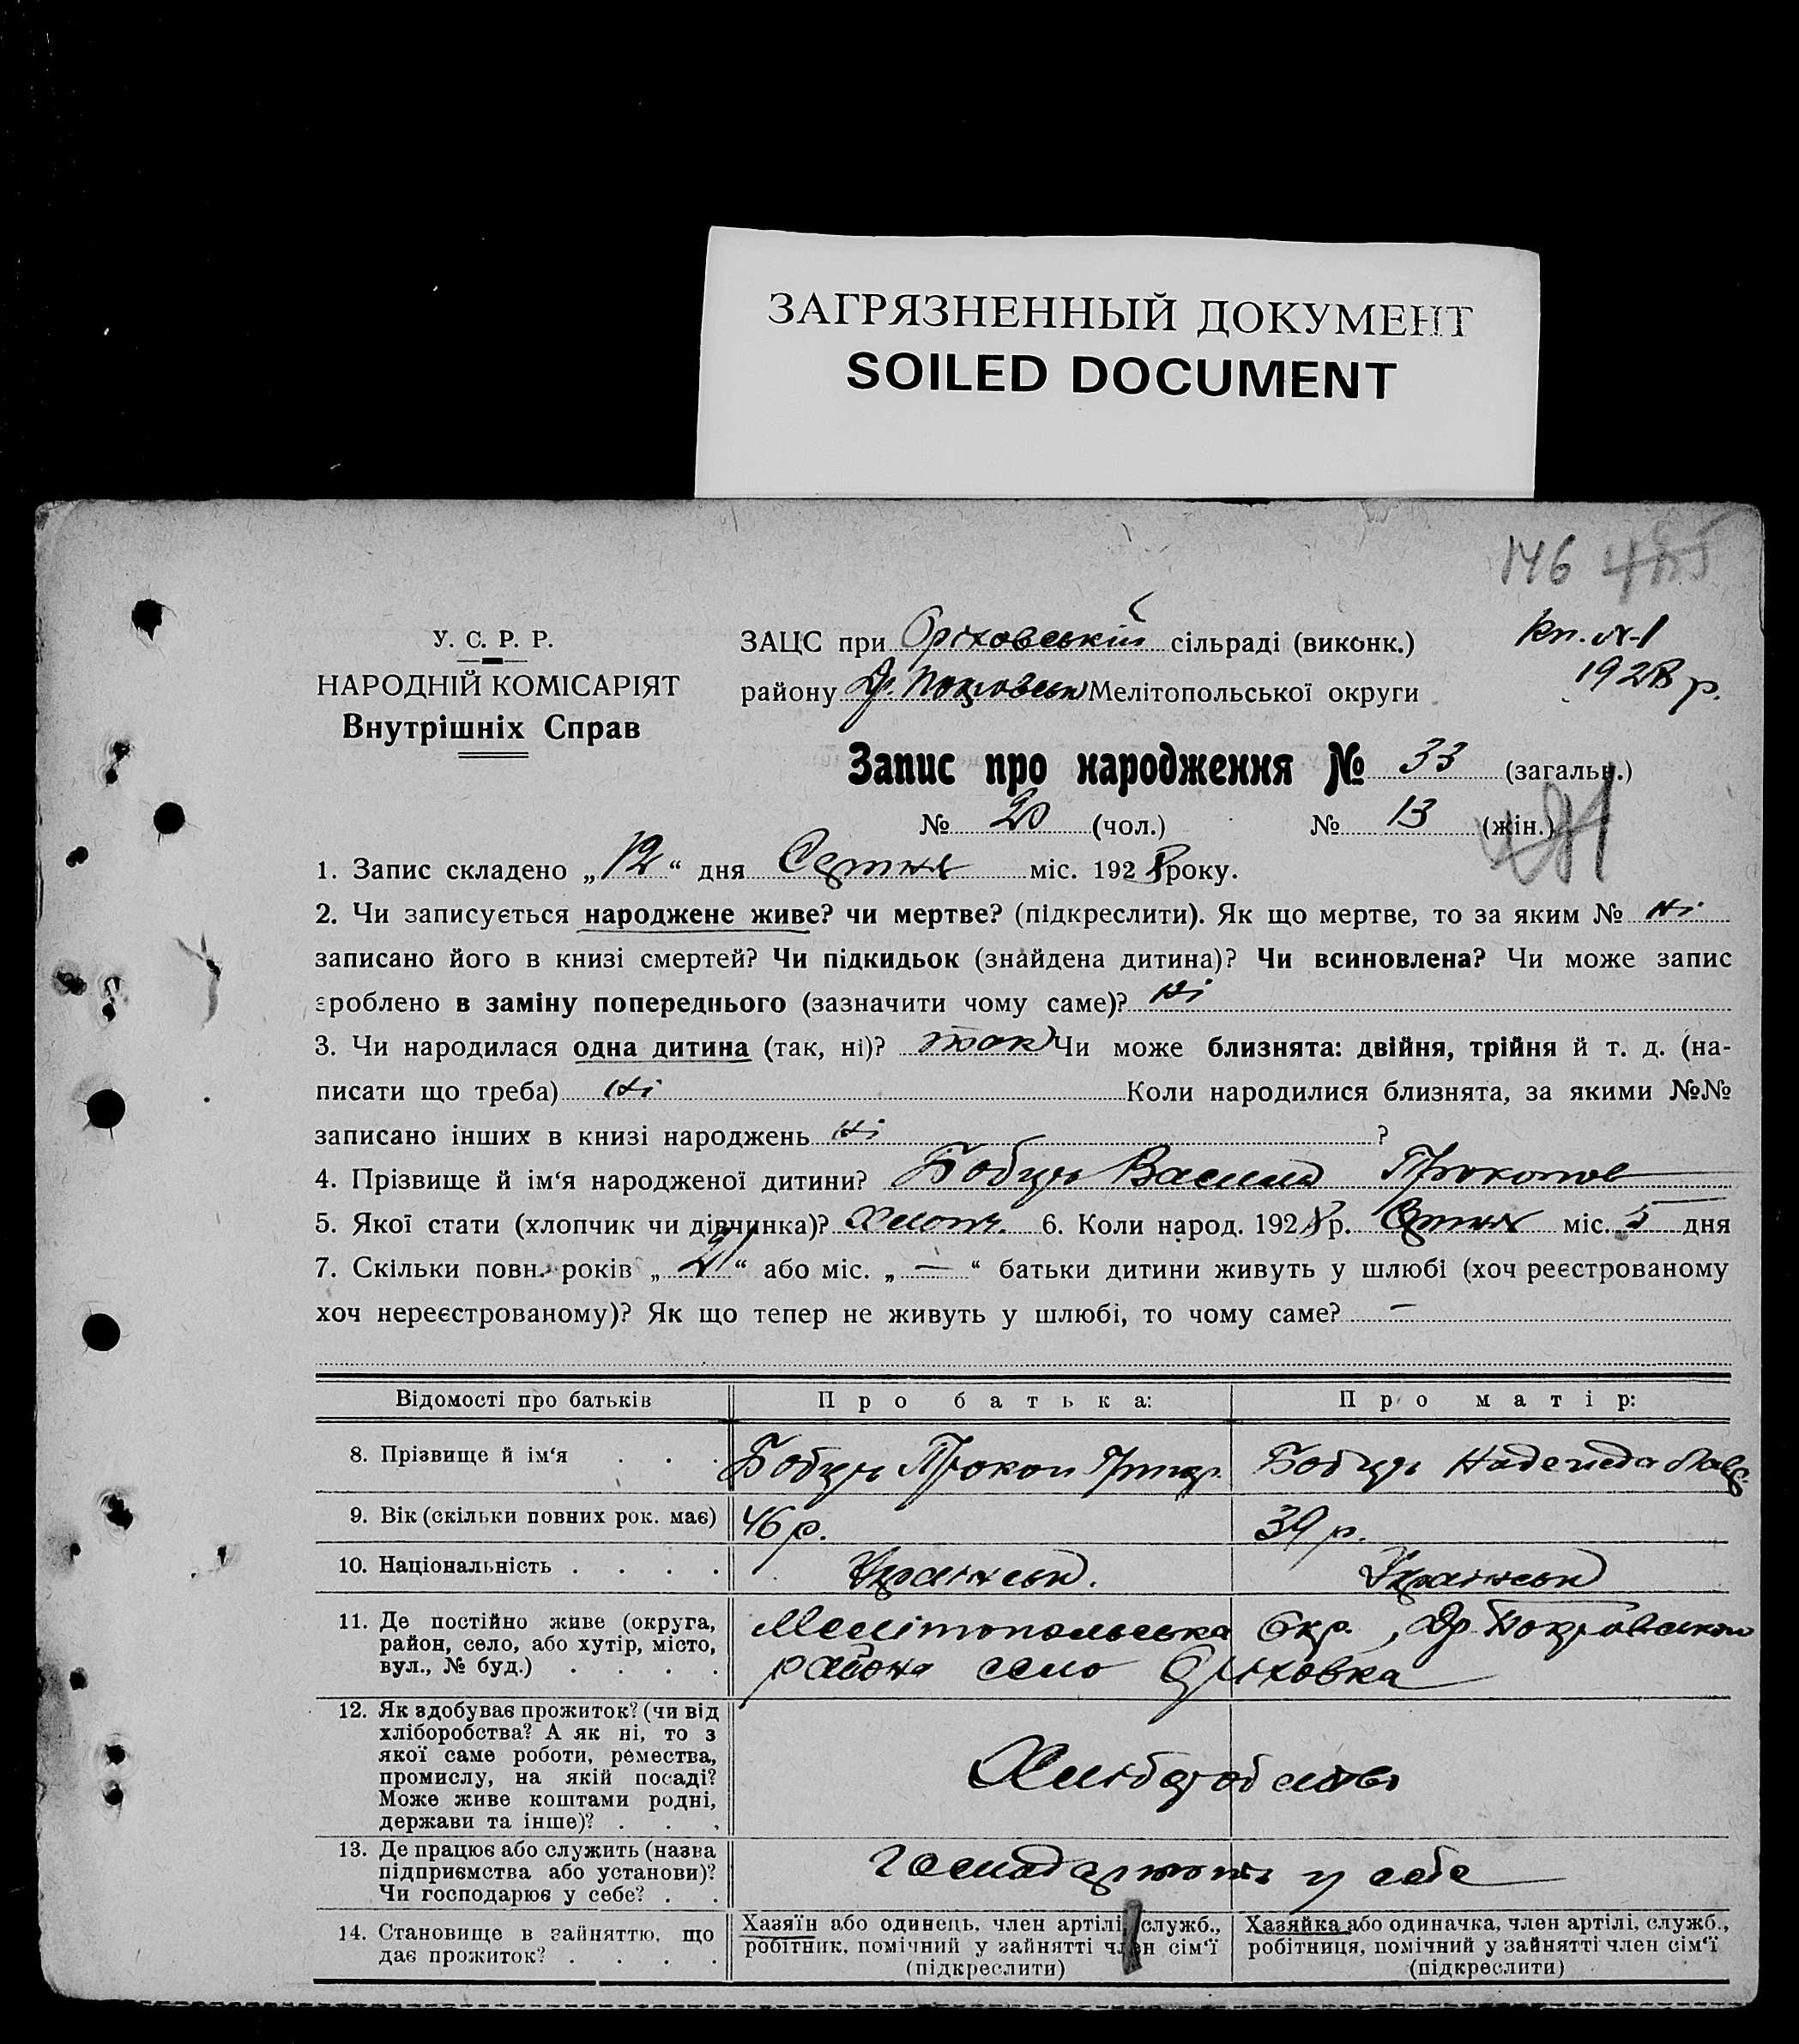 ЗАГРЯЗНЕННЫЙ ДОКУМЕНТ
SOILED DOCUMENT
146
У. С. Р. Р.
НАРОДНІЙ КОМІСАРІЯТ
Внутрішніх Справ
ЗАЦС при Оріховській сільраді (виконк.)
кн. №1
району Др. Покровськ Мелітопольської округи
1928 р.
Запис про народження № 33 (загальн.)
№ 20 (чол.) № 13 (жін.)
1. Запис складено „12“ дня Серпня міс. 1928 року.
2. Чи записується народжене живе? чи мертве? (підкреслити). Як що мертве, то за яким № ні
записано його в книзі смертей? Чи підкидьок (знайдена дитина)? Чи всиновлена? Чи може запис
зроблено в заміну попереднього (зазначити чому саме)? ні
3. Чи народилася одна дитина (так, ні)? так Чи може близнята: двійня, трійня й т. д. (на-
писати що треба) ні Коли народилися близнята, за якими №№
записано інших в книзі народжень ні ?
4. Прізвище й ім‘я народженої дитини? Бобирь Василь Прокопов
5. Якої стати (хлопчик чи дівчинка)? Хлопч. 6. Коли народ. 1928 р. Серпня міс. 5 дня
7. Скільки повн. років „21“ або міс. „—“ батьки дитини живуть у шлюбі (хоч реєстрованому
хоч нереєстрованому)? Як що тепер не живуть у шлюбі, то чому саме? —
Відомості про батьків Про батька: Про матір:
8. Прізвище й ім‘я . . . Бобирь Прокоп Григор. Бобирь Надежда
9. Вік (скільки повних рок. має) 46 р. 39 р.
10. Національність . . . . Українськ. Українськ
11. Де постійно живе (округа,
район, село, або хутір, місто,
вул., № буд.) . . . .
Мелітопольська Окр., Др. Покровськой
района село Оріховка
12. Як здобуває прожиток? (чи від
хліборобства? А як ні, то з
якої саме роботи, ремества,
промислу, на якій посаді?
Може живе коштами родні,
держави та інше)? . . .
Хліборобство
13. Де працює або служить (назва
підприємства або установи)?
Чи господарює у себе? . .
Господарюють у себе
14. Становище в зайняттю, що
дає прожиток? . . . .
Хазяїн або одинець, член артілі, служб.,
робітник, помічний у зайнятті член сім‘ї
(підкреслити)
Хазяйка або одиначка, член артілі, служб.,
робітниця, помічний у зайнятті член сім‘ї
(підкреслити)